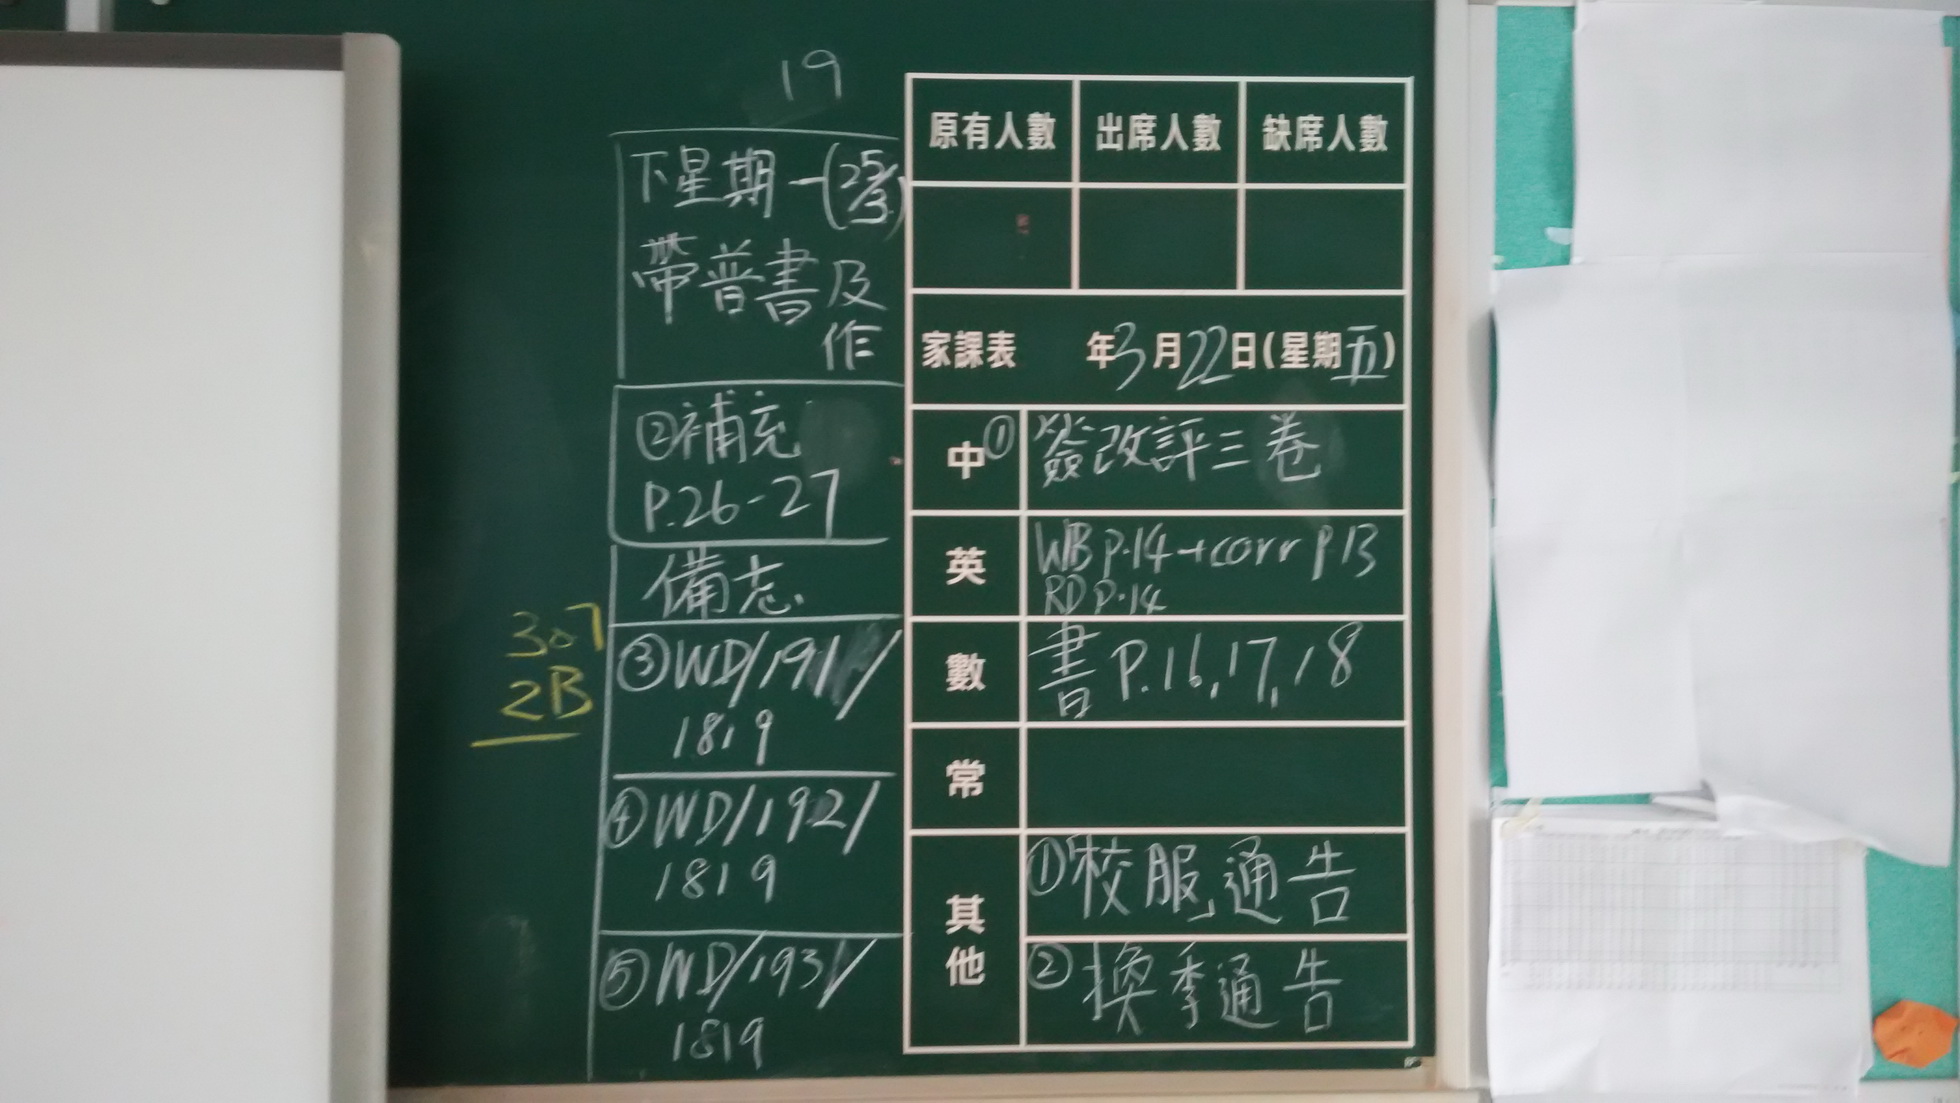 19
下星期一(25/3)
帶普書及
作
②補充
P.26-27
備忘
③WD/191/
1819
④WD/192/
1819
⑤WD/193/
1819
307
2B
原有人數 出席人數 缺席人數
家課表 年3月22日(星期五)
中 ①簽改評三卷
英 WB p.14+corr p.13
RD p.14
數 書P.16,17,18
常
其他 ①「校服」通告
②換季通告